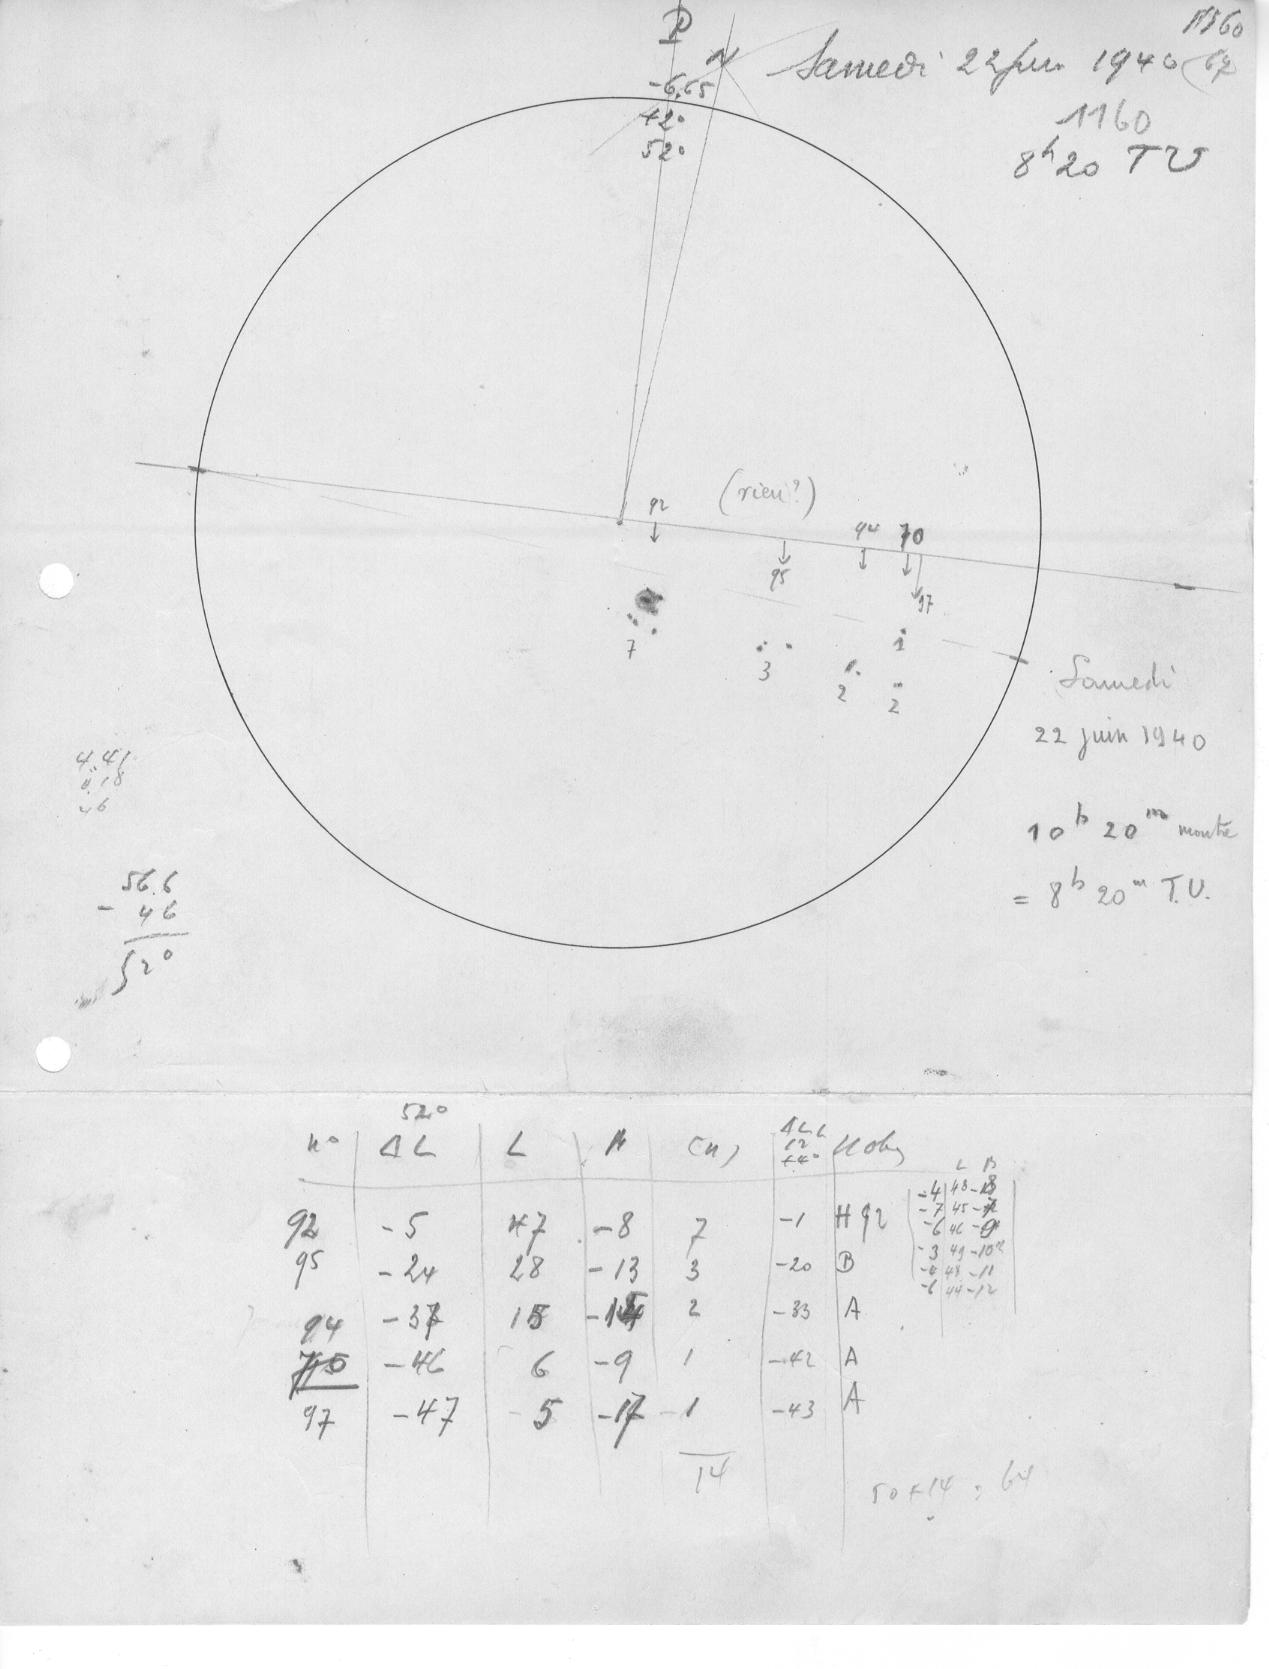 P
N
-6,65
+2°
52°
Samedi 22 juin 1940
1160
8h20 TU
92
(rien?)
94 70
95
97
7
3
2
1
2
Samedi
22 juin 1940
10h 20m montre
= 8h 20m T.U.
4.41
4.18
46
56.6
- 46
52°
52°
n° ΔL L (n)
92 -5 47 -8 7 -1 H 92
95 -24 28 -13 3 -20 B
94 -37 15 2 -33 A
-46 6 -9 1 -42 A
97 -47 5 -17 1 -43 A
14
L B
-4 48
-7 45
-6 46
-3 49 -10
-11
44 -12
50+14 = 64